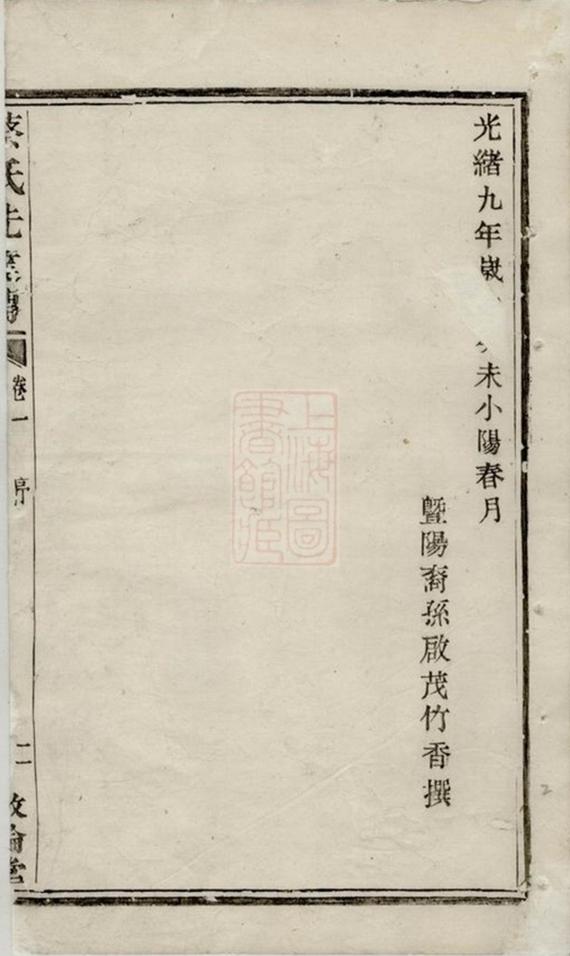 光緒九年歲
未小陽春月
暨陽裔孫啟茂竹香撰
氏先
卷一
序
二
敦倫堂
上海圖書館藏